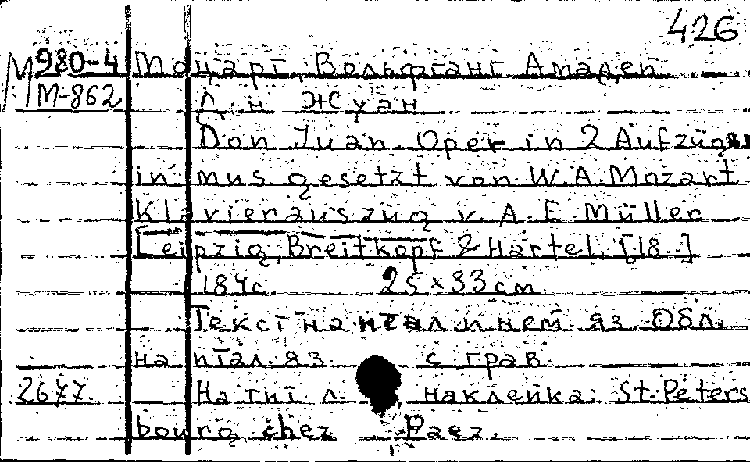 426
М980-4 Моцарт, Вольфганг Амадей
М-862 Д н Жуан
Don Juan. Oper in 2 Aufzügen
in mus gesetzt von W. A. Mozart
Klavierauszug v. A. E. Müller
Leipzig, Breitkopf & Härtel, [18..]
184с 25 x 33 см
Текст на итал и нем яз. Обл.
на итал яз с грав.
2677 На тит л наклейка: St-Peters
bourg chez Paez.